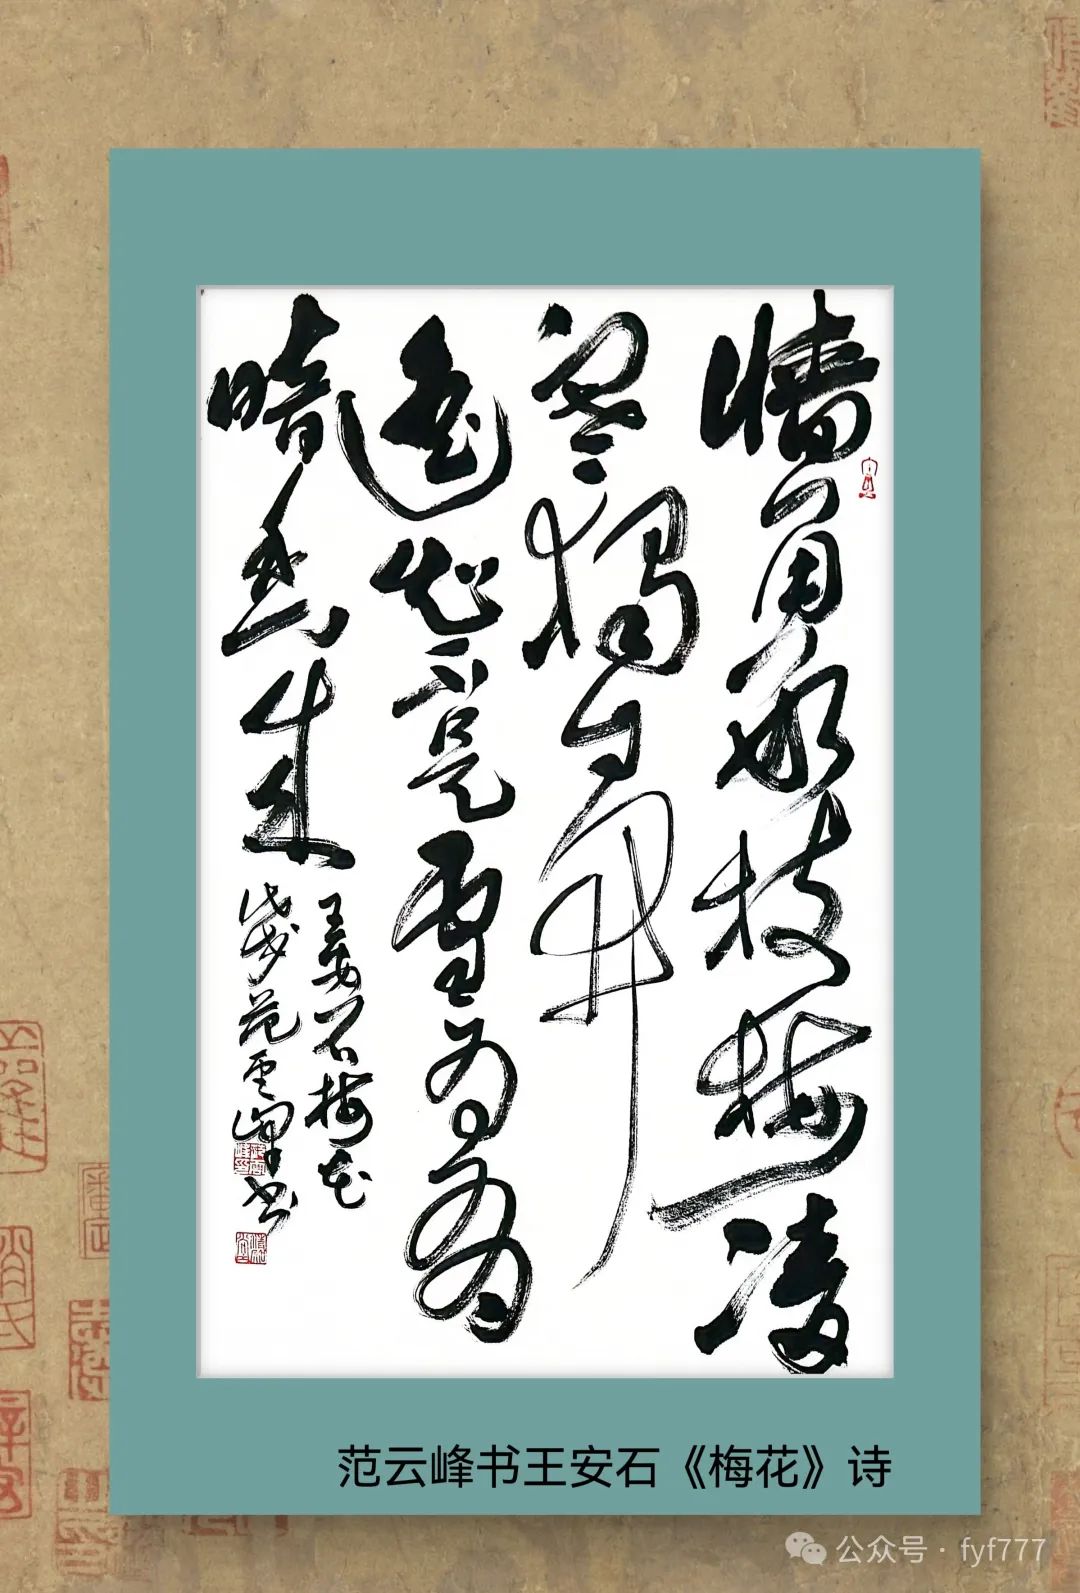 牆角数枝梅凌
寒独自开
遥知不是雪为有
暗香来
王安石梅花
范雲峰书
范云峰书王安石《梅花》诗
公众号·fyf777